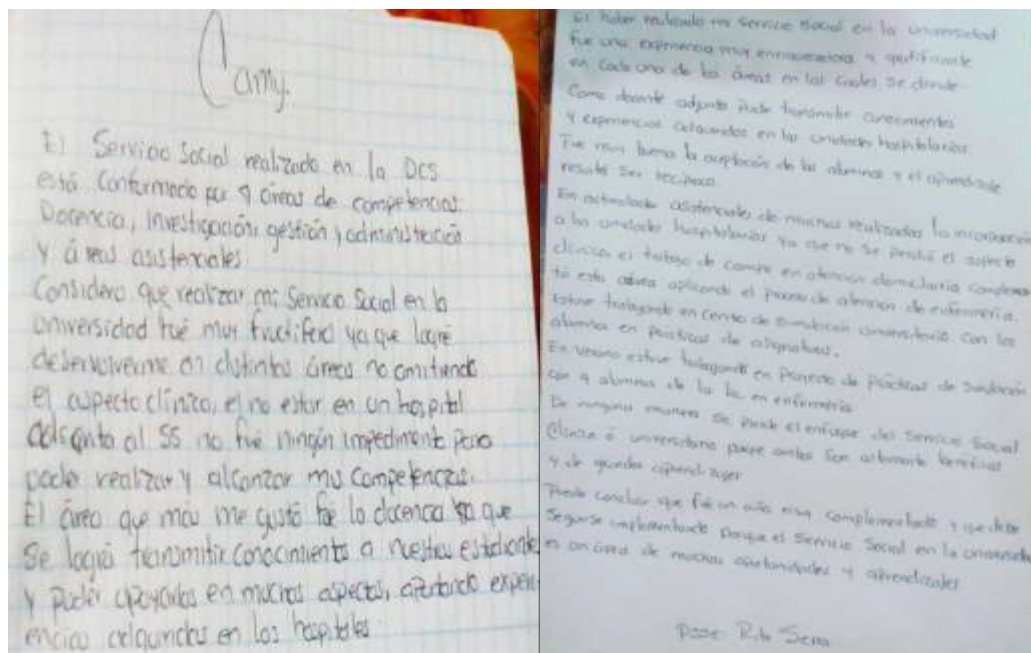 Camy.
El Servicio Social realizado en la DCS
está Conformado por 4 áreas de competencias:
Docencia, investigación, gestión y administración
y áreas asistenciales
Considero que realizar mi Servicio Social en la
universidad fué muy fructífero ya que logré
desenvolverme en distintas áreas no omitiendo
el aspecto clínico, el no estar en un hospital
adscrito al SS no fué ningún impedimento para
poder realizar y alcanzar mis competencias.
El área que más me gustó fue la docencia ya que
Se logró transmitir conocimiento a nuestros estudiante
y poder apoyarlos en muchos aspectos, aportando experi
encias adquiridas en los hospitales.
El haber realizado mi Servicio Social en la universidad
fue una experiencia muy enriquecedora y gratificante
en cada una de las áreas en las cuales se divide.
Como docente adjunto pude transmitir conocimientos
y experiencias adquiridas en las unidades hospitalarias.
Fue muy buena la aceptación de los alumnos y el aprendizaje
resultó ser recíproco.
En actividades asistenciales de muchas realizadas la incorporación
a las unidades hospitalarias ya que no se perdió el aspecto
clínico, el trabajo de campo en atención domiciliaria complemen
tó esta aplicando el proceso de atención de enfermería.
Estuve trabajando en Centro de Simulación universitario con los
alumnos en prácticas de asignaturas.
En verano estuve trabajando en Proyecto de prácticas de Simulación
con 4 alumnos de la lic en enfermería
De ninguna manera se pierde el enfoque del Servicio Social
Clínico ó universitario porque ambos son altamente benéficos
y de grandes aprendizajes
Puedo concluir que fué un año muy complementado y que debe
Seguirse implementando porque el Servicio Social en la universidad
es un área de muchas oportunidades y aprendizajes
Rita Serna